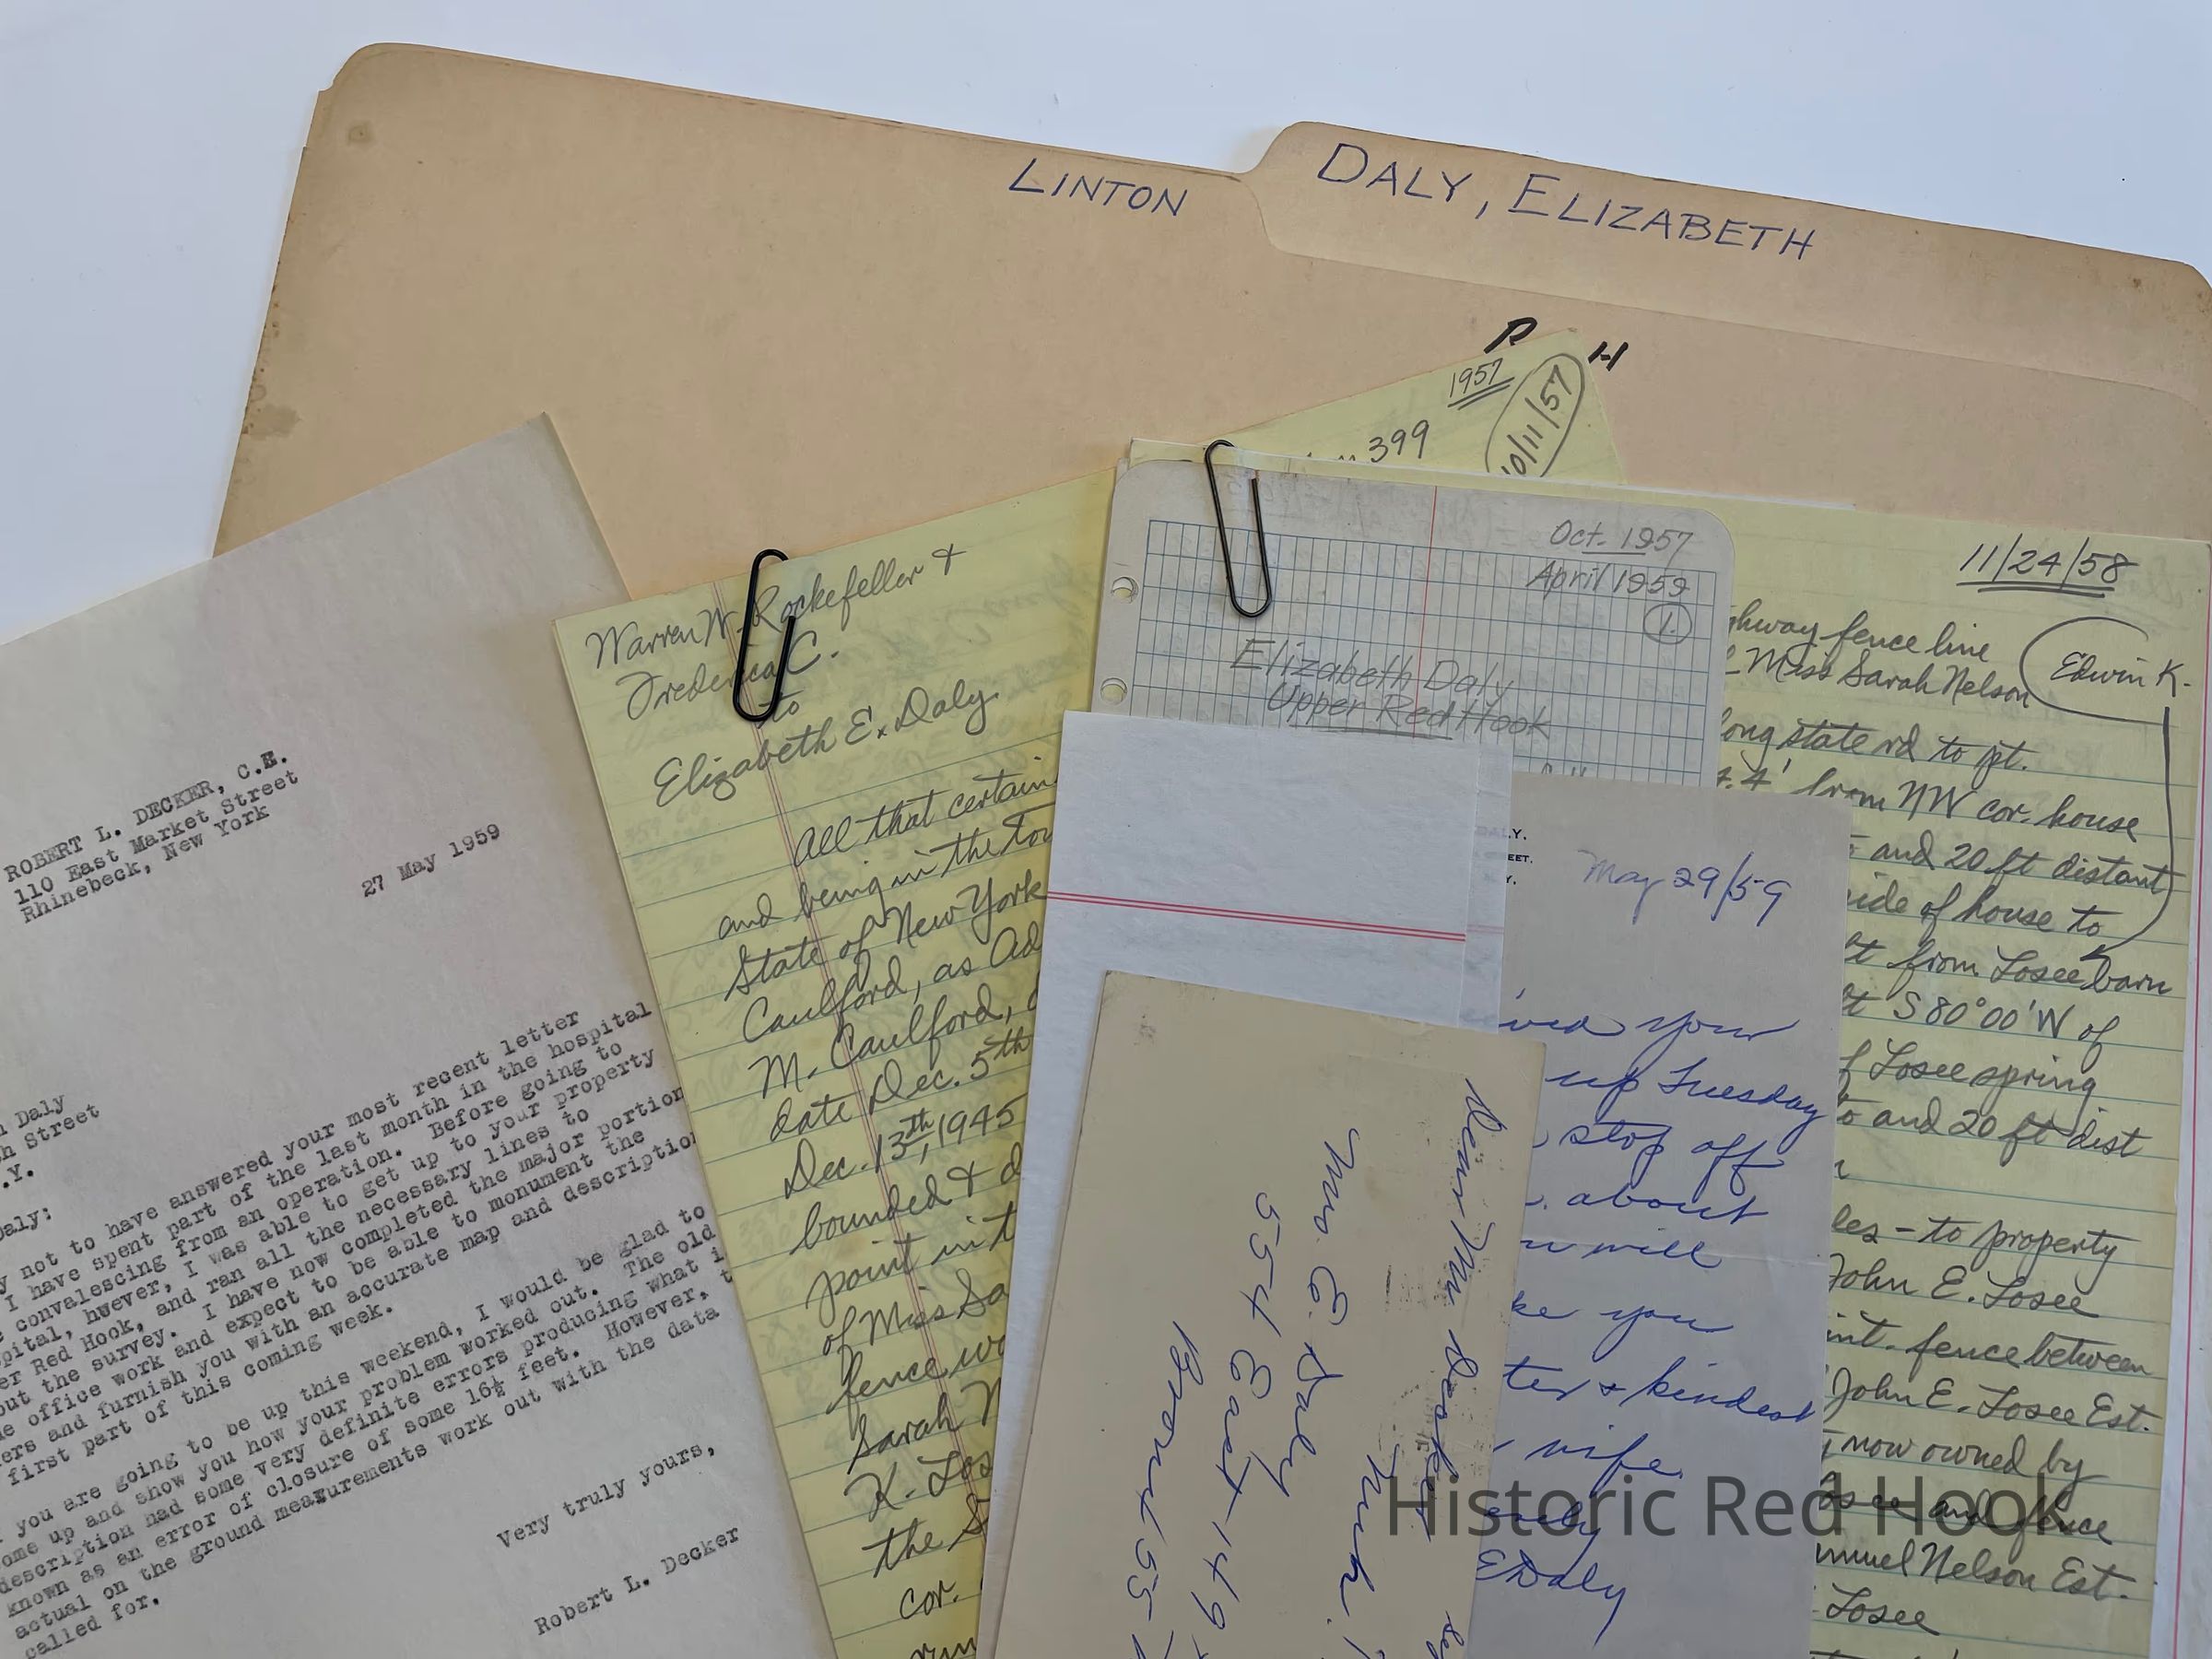 LINTON
DALY, ELIZABETH
R H
1957
10/11/57
399
ROBERT L. DECKER, C.E.
110 East Market Street
Rhinebeck, New York
27 May 1959
Daly
Street
.Y.
Daly:
not to have answered your most recent letter
I have spent part of the last month in the hospital
convalescing from an operation. Before going to
pital, however, I was able to get up to your property
er Red Hook, and ran all the necessary lines to
out the survey. I have now completed the major portion
e office work and expect to be able to monument the
ers and furnish you with an accurate map and description
first part of this coming week.
you are going to be up this weekend, I would be glad to
ome up and show you how your problem worked out. The old
description had some very definite errors producing what i
known as an error of closure of some 16½ feet. However, t
actual on the ground measurements work out with the data
called for.
Very truly yours,
Robert L. Decker
Warren W. Rockefeller &
Frederica C.
to
Elizabeth E. Daly
All that certain
and being in the Tow
State of New York
Caulford, as Ad
M. Caulford,
date Dec. 5th
Dec. 13th, 1945
bounded & d
point in t
of Miss Sa
fence
Sarah N
K. Los
the S
cor.
run
Oct. 1957
April 1959
1.
Elizabeth Daly
Upper Red Hook
11/24/58
ghway fence line
Miss Sarah Nelson
Edwin K.
long state rd to pt.
4' from NW cor. house
and 20 ft distant
side of house to
ft from Losee barn
ft S 80°00'W of
f Losee spring
to and 20 ft dist
les - to property
John E. Losee
int. fence between
John E. Losee Est.
now owned by
Losee and fence
amuel Nelson Est.
Losee
ALY.
EET.
Y.
May 29/59
ived your
up Tuesday
stop off
about
u will
ke you
ter & kindest
wife
E Daly
Mrs. E. Daly
554 East 149
Bronx 55
Dear Mr Decker
Historic Red Hook